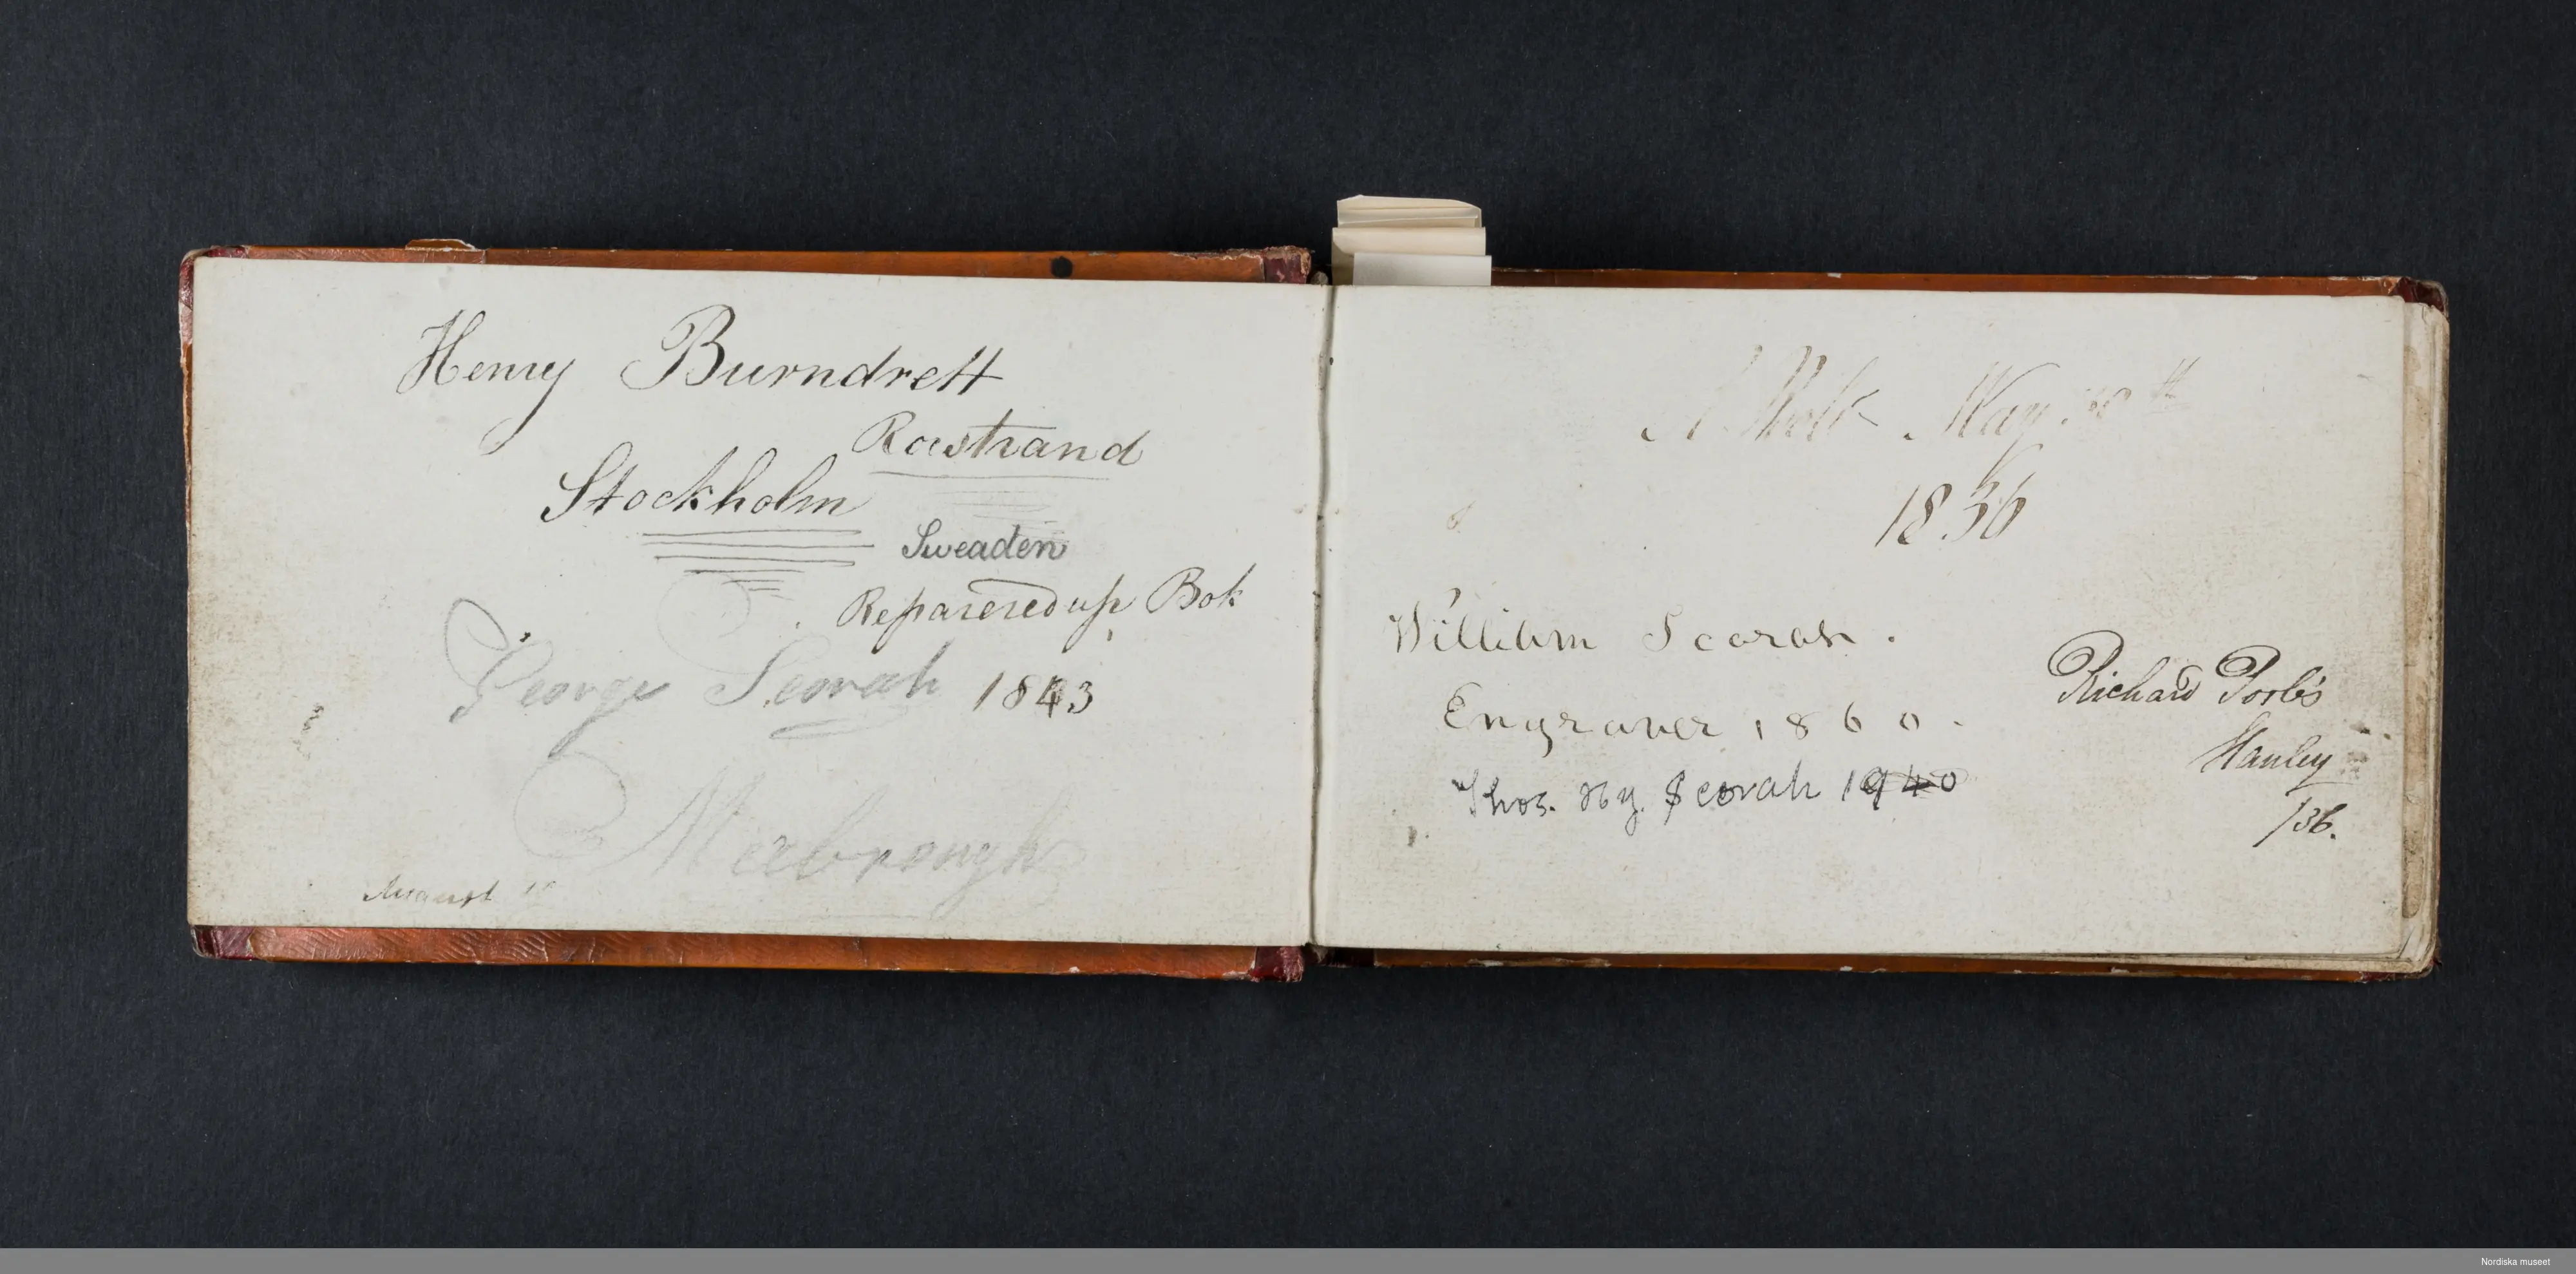 Henry Burndrett
Rostrand
Stockholm
Sweaden
Reparered up Bok
George Scorah 1843
Meebrough
August
May
1836
William Scorah.
Engraver 1860.
Thos. Hy. Scorah 1940
Richard
Hanley
/36.
Nordiska museet